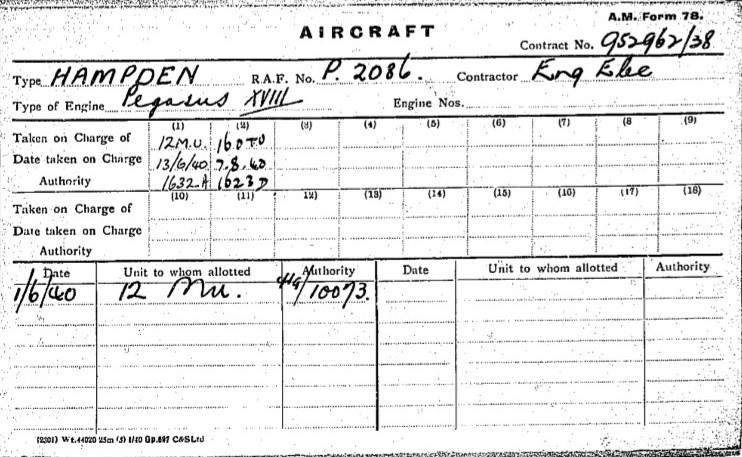 A.M. Form 78.
AIRCRAFT
Contract No. 952962/38
Type HAMPDEN R.A.F. No. P. 2086. Contractor Eng Elec
Type of Engine Pegasus XVIII Engine Nos.
(1) (2) (3) (4) (5) (6) (7) (8 (9)
Taken on Charge of 12 M.U. 16 OTU
Date taken on Charge 13/6/40 7.8.40
Authority 1632 A 1623 D
(10) (11) 12) (13) (14) (15) (16) (17) (18)
Taken on Charge of
Date taken on Charge
Authority
Date Unit to whom allotted Authority Date Unit to whom allotted Authority
1/6/40 12 Mu. 41g/10073.
(2301) Wt.44020 25m (3) 1/40 Gp.697 C&SLtd